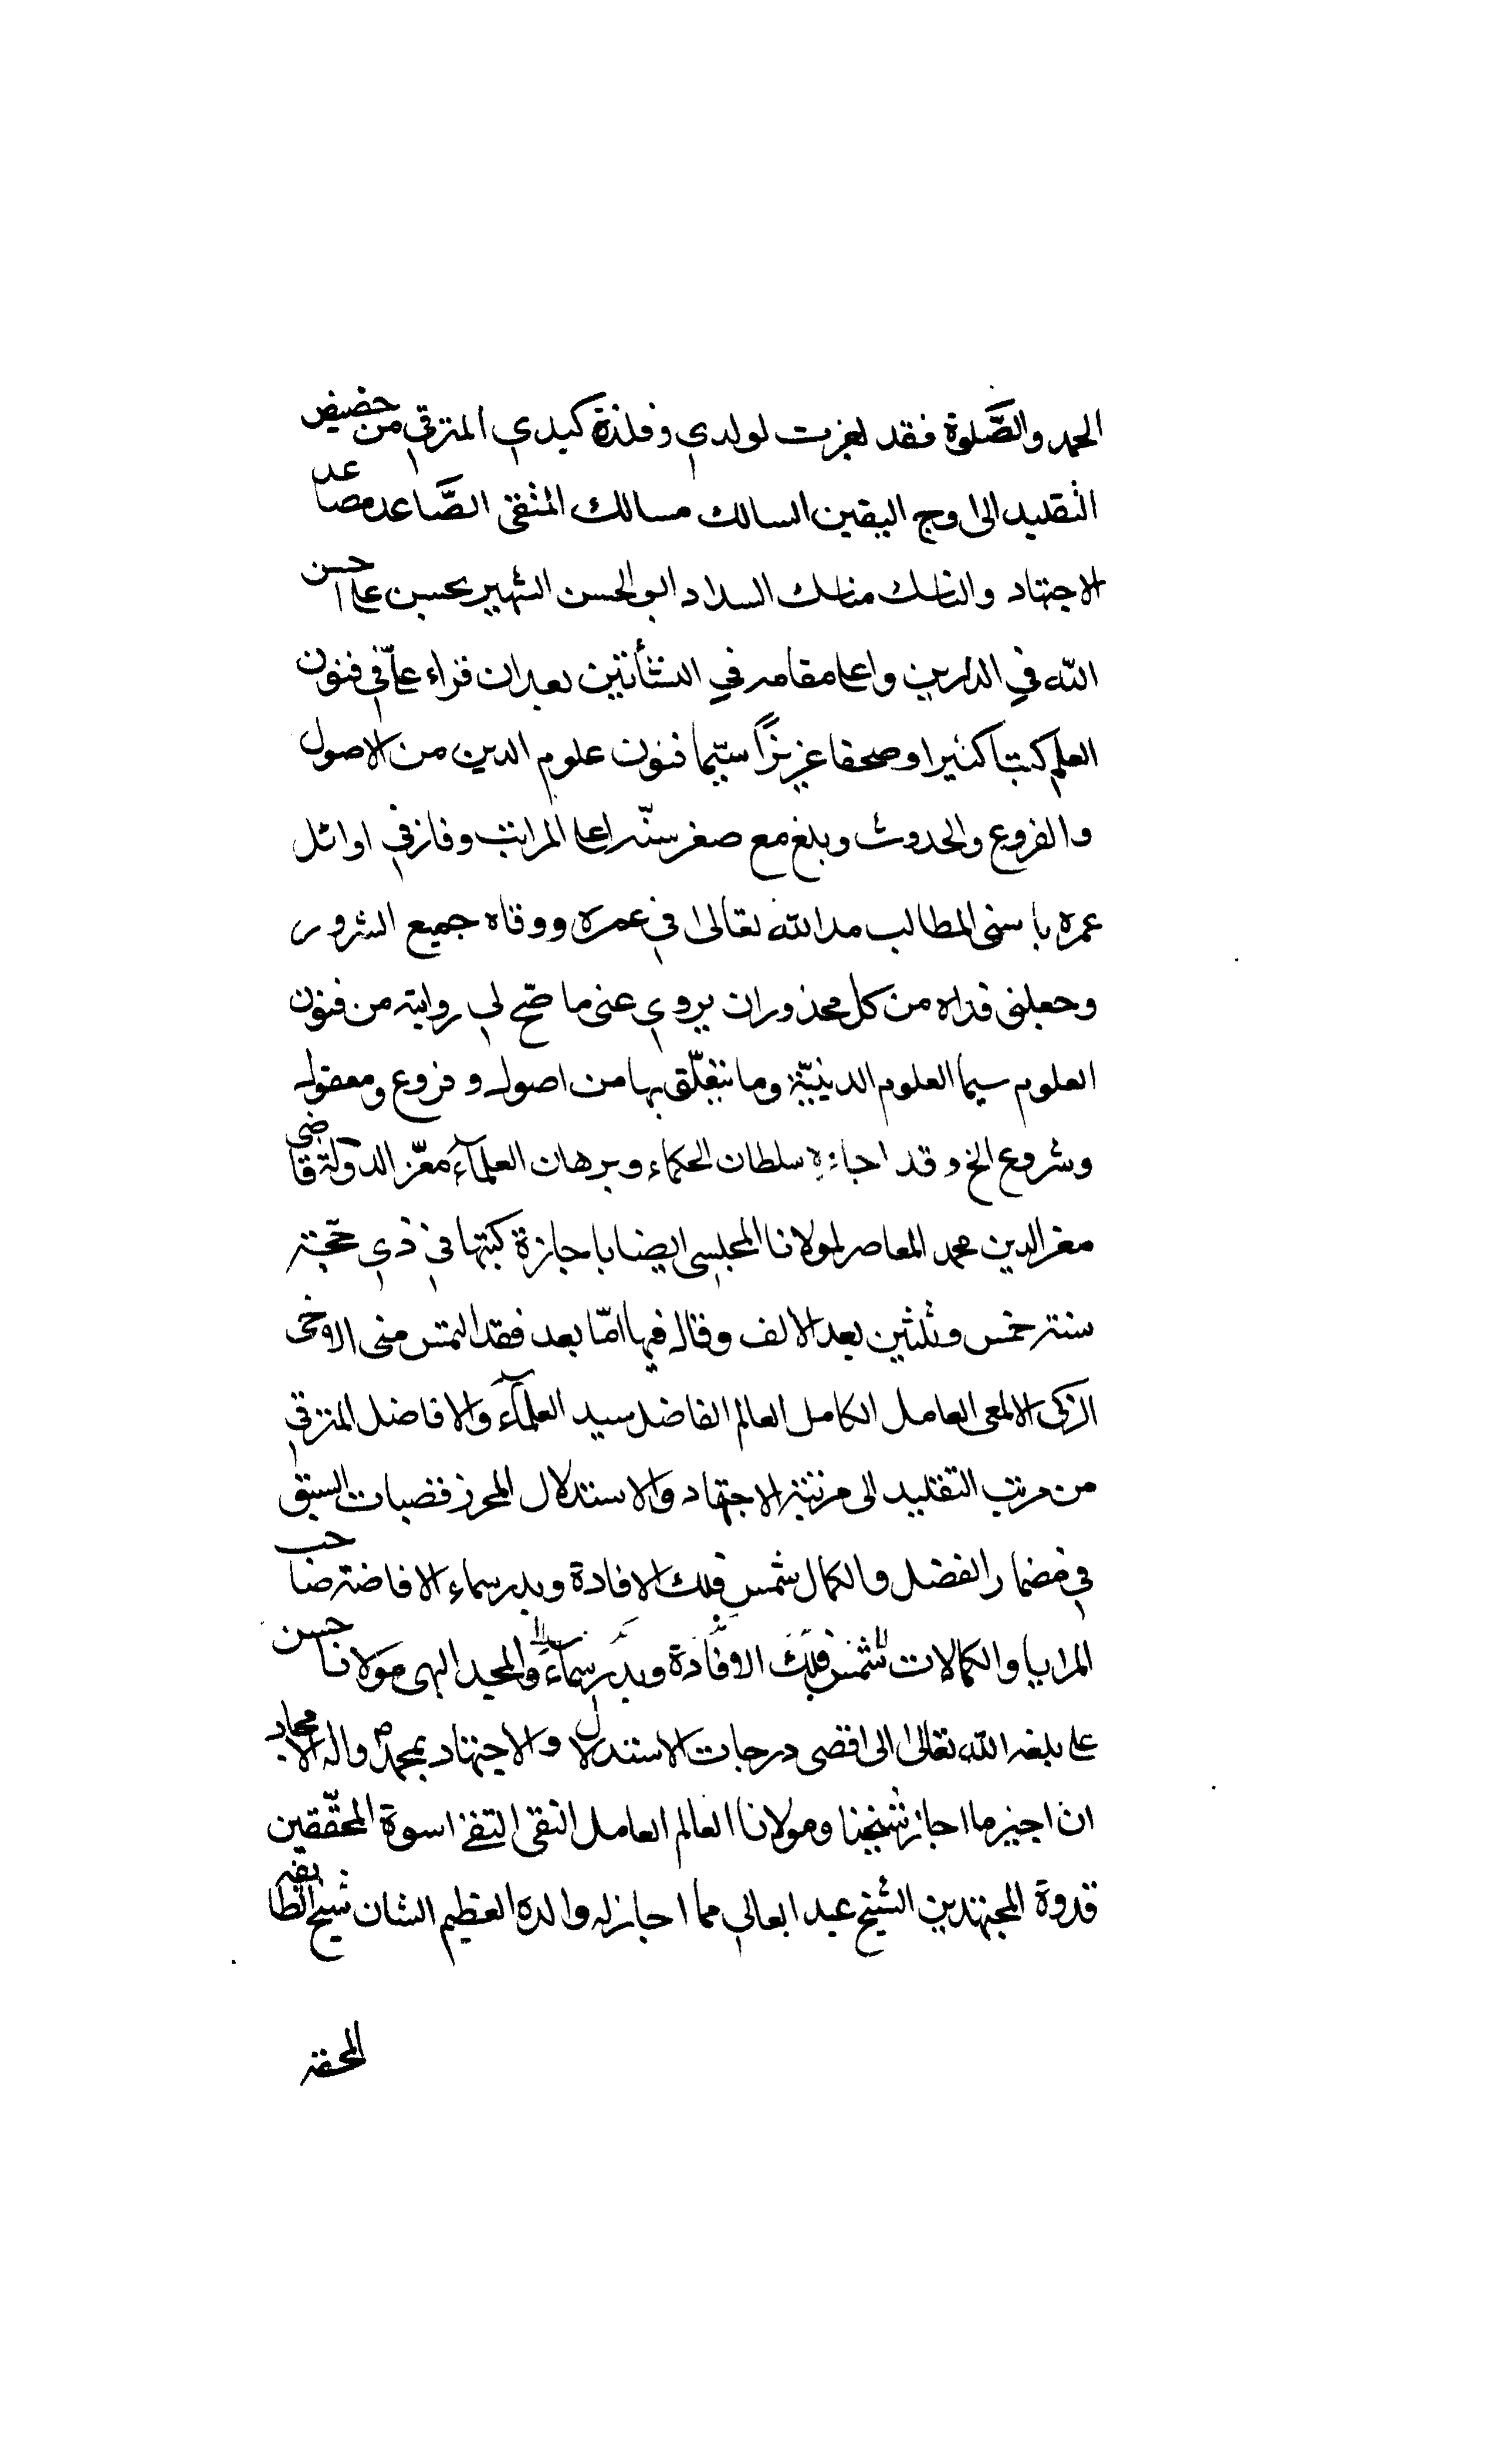 الحمد والصَّلوة فقد اجزت لولدي وفلذة كبدي المترقي من حضيض
التقليد الى اوج اليقين السالك مسالك المتقى الصَّاعد مصاعد
الاجتهاد والناسك مناسك السداد ابو الحسن الشهير بحسن على احسن
الله في الدارين واعلى مقامه في النشأتين بعد ان قراء علىّ في فنون
العلم كتبا كثيرا وصحفا غزيزاً سيّما فنون علوم الدين من الاصول
والفروع والحدوث وبلغ مع صغر سنّه اعلى المراتب وفاز في اوائل
عمره باسنى المطالب مد الله تعالى في عمره ووقاه جميع الشرور
وجعلنى فداه من كل محذور ان يروي عنى ما صّح لي روايته من فنون
العلوم سيما العلوم الدينيّة وما يتعلّق بها من اصول وفروع ومعقول
وشروع الخ وقد اجازه سلطان الحكماء وبرهان العلمآء معّز الدولة قاضى
معز الدين محمد المعاصر لمولانا المجلسى ايضا باجازة كتبها في ذي حّجة
سنة خمس وثلثين بعد الالف وقال فيها امّا بعد فقد التمس منى الاخى
الزكى الالمعى العامل الكامل العالم الفاضل سيد العلمآء والافاضل المترقي
من مرتب التقليد الى مرتبة الاجتهاد والاستدلال المحرز قصبات السبق
في مضمار الفضل والكمال شمس فلك الافادة وبدر سماء الافاضة صاحب
المزايا والكمالات شمس فلك الافادة وبدر سماء والمجيد البهى مولانا حسن
على بلغه الله تعالى الى اقصى درجات الاستدلال والاجتهاد بمحمد ص واله الامجاد
ان اجيز ما اجاز شيخنا ومولانا العالم العامل النقى التقى اسوة المحقّقين
قدوة المجتهدين الشيخ عبد ابعالي مما اجاز له والده العظيم الشان شيخ الطايفه
المحقة